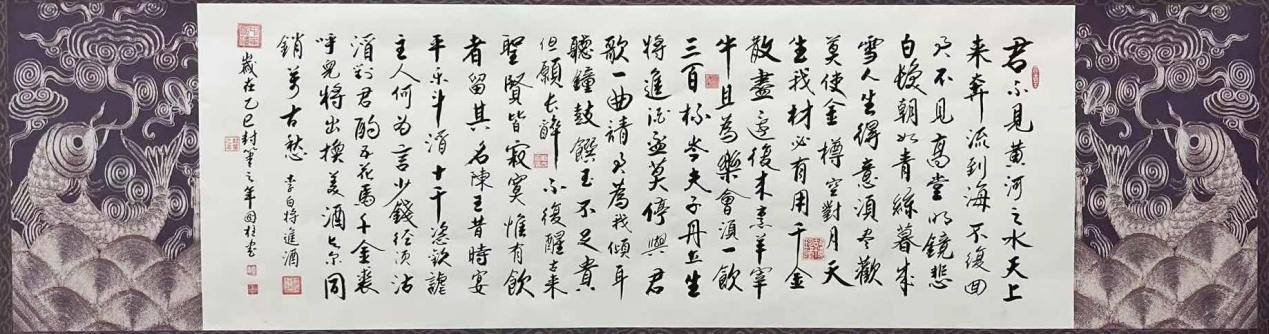 君不見黄河之水天上
来奔流到海不復回
君不見高堂明鏡悲
白髮朝如青絲暮成
雪人生得意須尽歡
莫使金樽空對月天
生我材必有用千金
散盡還復来烹羊宰
牛且為樂會須一飲
三百杯岑夫子丹丘生
將進酒盃莫停與君
歌一曲請君為我傾耳
聽鐘鼓饌玉不足貴
但願长醉不復醒古来
聖賢皆寂寞惟有飲
者留其名陳王昔時宴
平乐斗酒十千恣歡謔
主人何為言少錢徑須沽
酒對君酌五花馬千金裘
呼兒將出換美酒与尔同
銷萬古愁 李白將進酒
歲在乙巳封筆之年国柱书